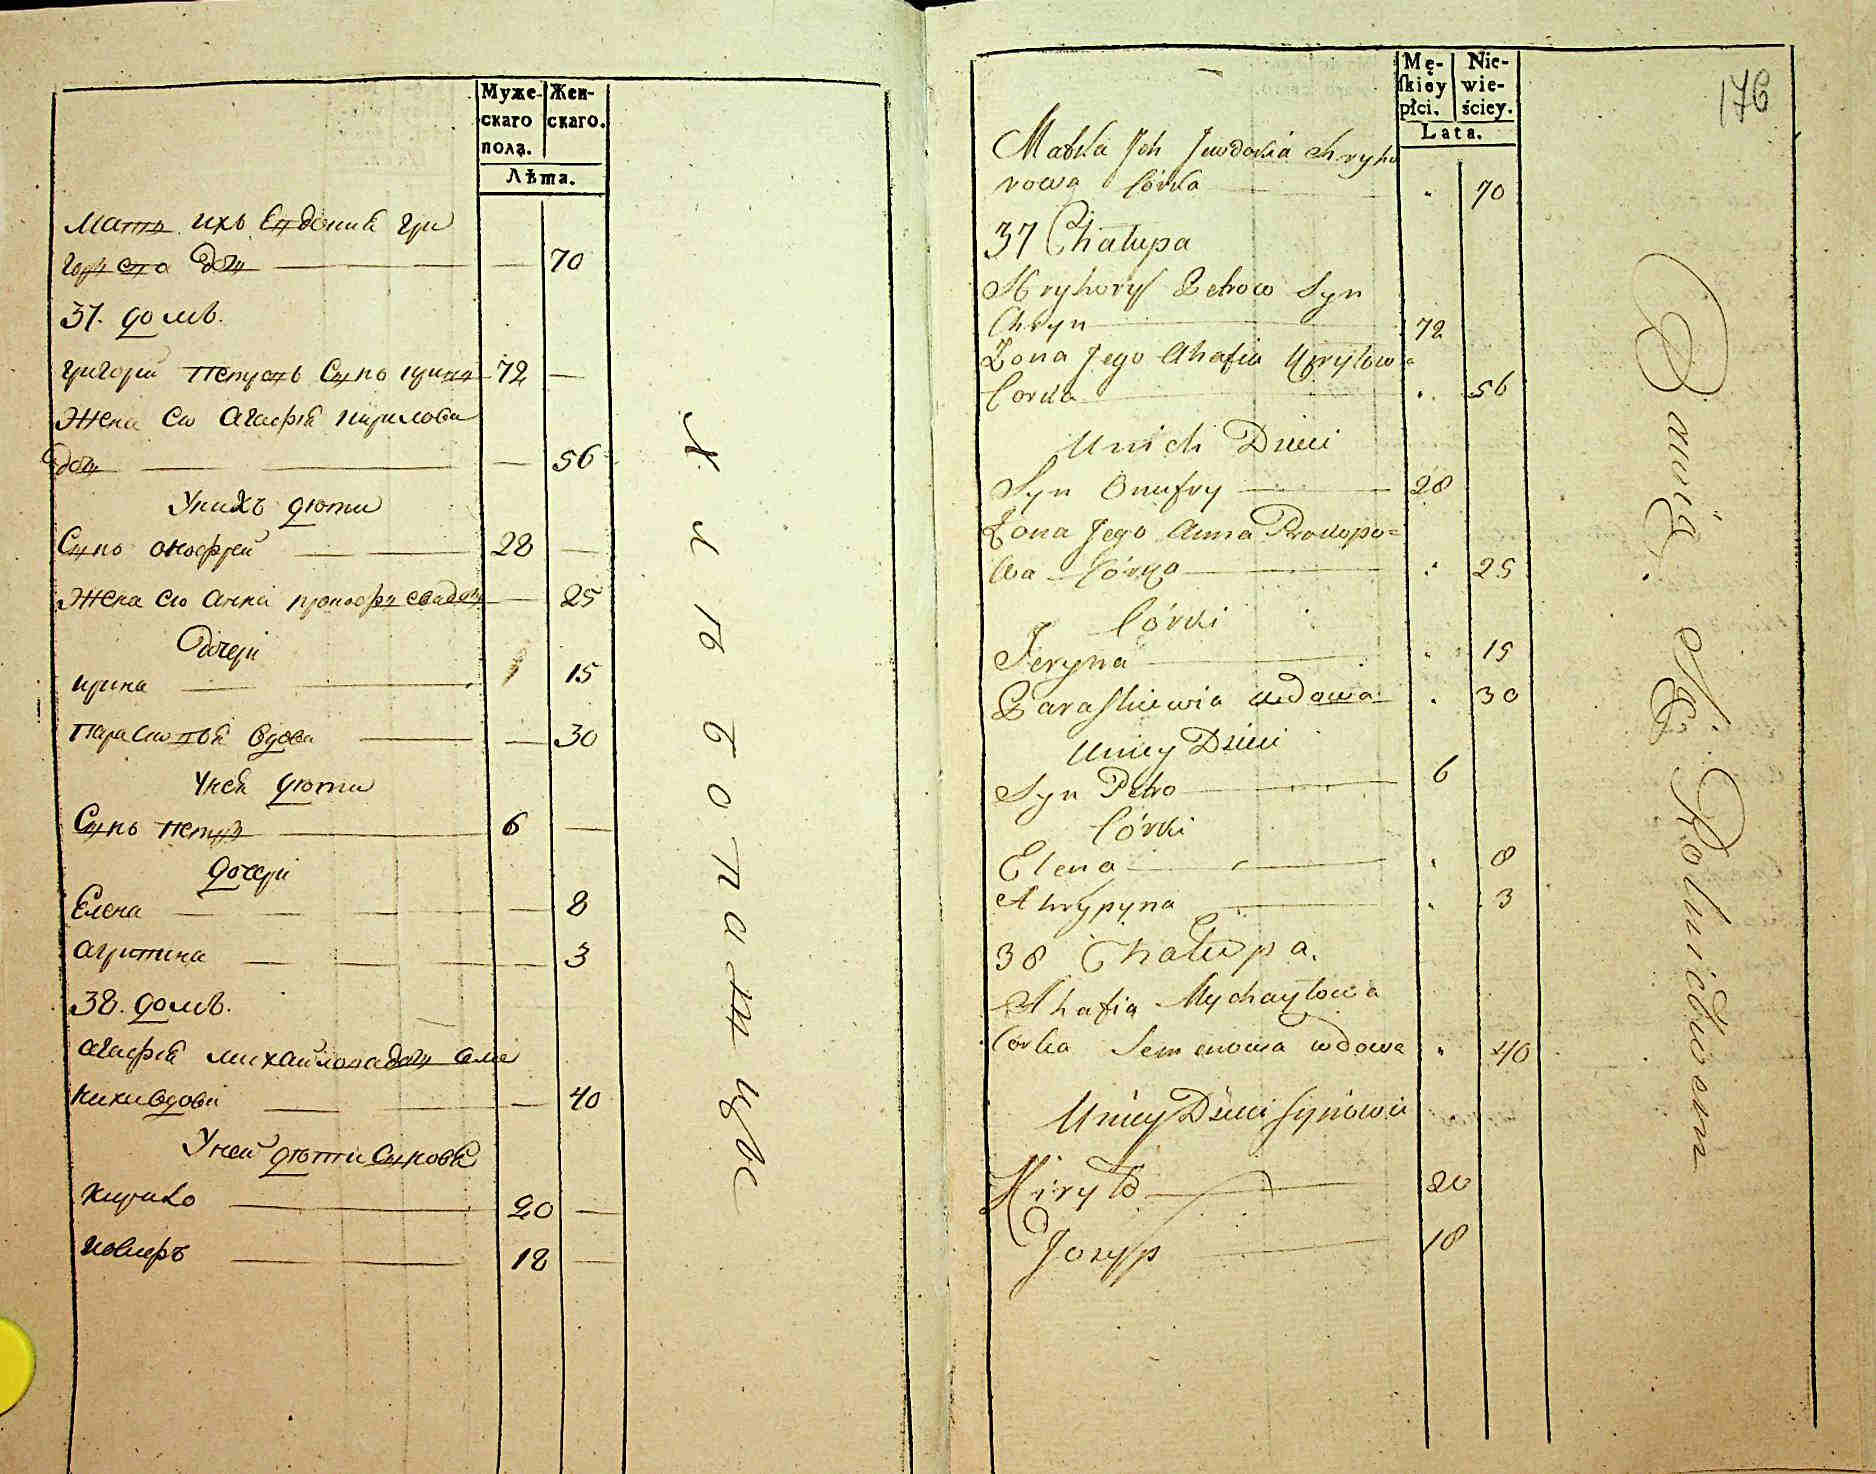 Муже- Жен-
скаго скаго.
пола.
Лѣта.
Мать ихъ Евдокия Гри
горьева дочь — 70
37. домъ.
Григорий Петровъ сынъ Гринь 72 —
Жена ево Агафия Кирилова
дочь — 56
У нихъ дѣти
Сынъ Онофрей 28 —
Жена ево Анна Прокофьева дочь — 25
Дочери
Ирина 15
Парасковья вдова — 30
У ней дѣти
Сынъ Петръ 6 —
Дочери
Елена — 8
Агрипина — 3
38. домъ.
Агафия Михайлова дочь Семе
нихи вдова — 40
У ней дѣти Сыновѣ
Кирило 20 —
Иосифъ 18 —
Хлѣбопашцы
176
Mę- Nie-
ſkiey wie-
płci. ściey.
Lata.
Matka Jch Jewdokia Hryho
rowa Córka 70
37 Chałupa
Hryhory Petrow Syn
Chryn 72
Żona Jego Ahafia Kyryłowa
Corka 56
U nich Dzieci
Syn Onufry 28
Żona Jego Anna Prokopo=
wa Córka 25
Córki
Jeryna 15
Paraskiewia wdowa 30
U niey Dzieci
Syn Petro 6
Córki
Elena 8
Ahrypyna 3
38 Chałupa.
Ahafia Mychayłowa
Corka Semenowa wdowa 40
U niey Dzieci Synowie
Kiryło 20
Jozyp 18
Bawią Się Rolnictwem